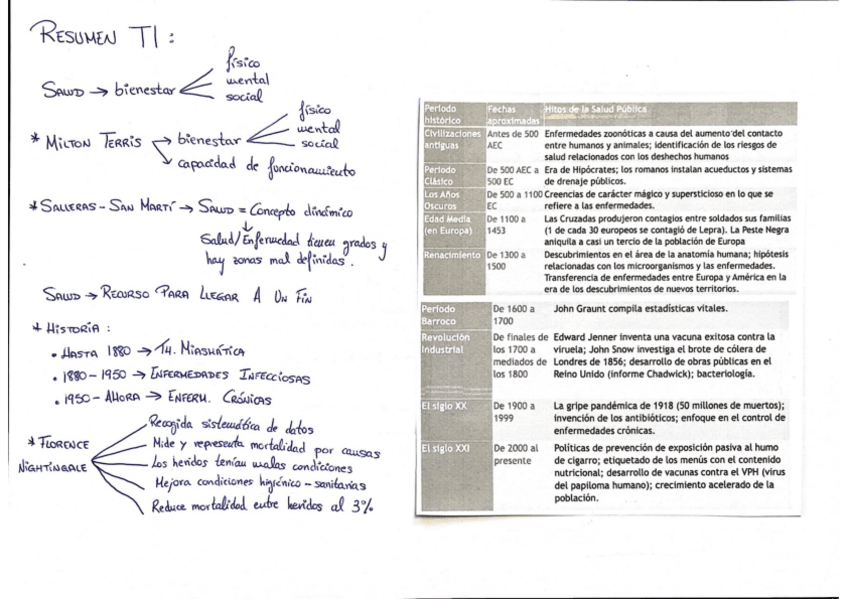 RESUMEN T1 :
SALUD → bienestar
físico
mental
social
* MILTON TERRIS → bienestar
físico
mental
social
→ capacidad de funcionamiento
* SALLERAS - SAN MARTÍ → SALUD = Concepto dinámico
↓
Salud/Enfermedad tienen grados y
hay zonas mal definidas.
SALUD → RECURSO PARA LLEGAR A UN FIN
* HISTORIA :
• HASTA 1880 → TH. MIASMÁTICA
• 1880 - 1950 → ENFERMEDADES INFECCIOSAS
• 1950 - AHORA → ENFERM. CRÓNICAS
* FLORENCE
NIGHTINGALE
Recogida sistemática de datos
Mide y representa mortalidad por causas
Los heridos tenían malas condiciones
Mejora condiciones higiénico - sanitarias
Reduce mortalidad entre heridos al 3%
Período Fechas Hitos de la Salud Pública
histórico aproximadas
Civilizaciones Antes de 500 Enfermedades zoonóticas a causa del aumento del contacto
antiguas AEC entre humanos y animales; identificación de los riesgos de
salud relacionados con los deshechos humanos
Período De 500 AEC a Era de Hipócrates; los romanos instalan acueductos y sistemas
Clásico 500 EC de drenaje públicos.
Los Años De 500 a 1100 Creencias de carácter mágico y supersticioso en lo que se
Oscuros EC refiere a las enfermedades.
Edad Media De 1100 a Las Cruzadas produjeron contagios entre soldados sus familias
(en Europa) 1453 (1 de cada 30 europeos se contagió de Lepra). La Peste Negra
aniquila a casi un tercio de la población de Europa
Renacimiento De 1300 a Descubrimientos en el área de la anatomía humana; hipótesis
1500 relacionadas con los microorganismos y las enfermedades.
Transferencia de enfermedades entre Europa y América en la
era de los descubrimientos de nuevos territorios.
Período De 1600 a John Graunt compila estadísticas vitales.
Barroco 1700
Revolución De finales de Edward Jenner inventa una vacuna exitosa contra la
Industrial los 1700 a viruela; John Snow investiga el brote de cólera de
mediados de Londres de 1856; desarrollo de obras públicas en el
los 1800 Reino Unido (informe Chadwick); bacteriología.
El siglo XX De 1900 a La gripe pandémica de 1918 (50 millones de muertos);
1999 invención de los antibióticos; enfoque en el control de
enfermedades crónicas.
El siglo XXI De 2000 al Políticas de prevención de exposición pasiva al humo
presente de cigarro; etiquetado de los menús con el contenido
nutricional; desarrollo de vacunas contra el VPH (virus
del papiloma humano); crecimiento acelerado de la
población.